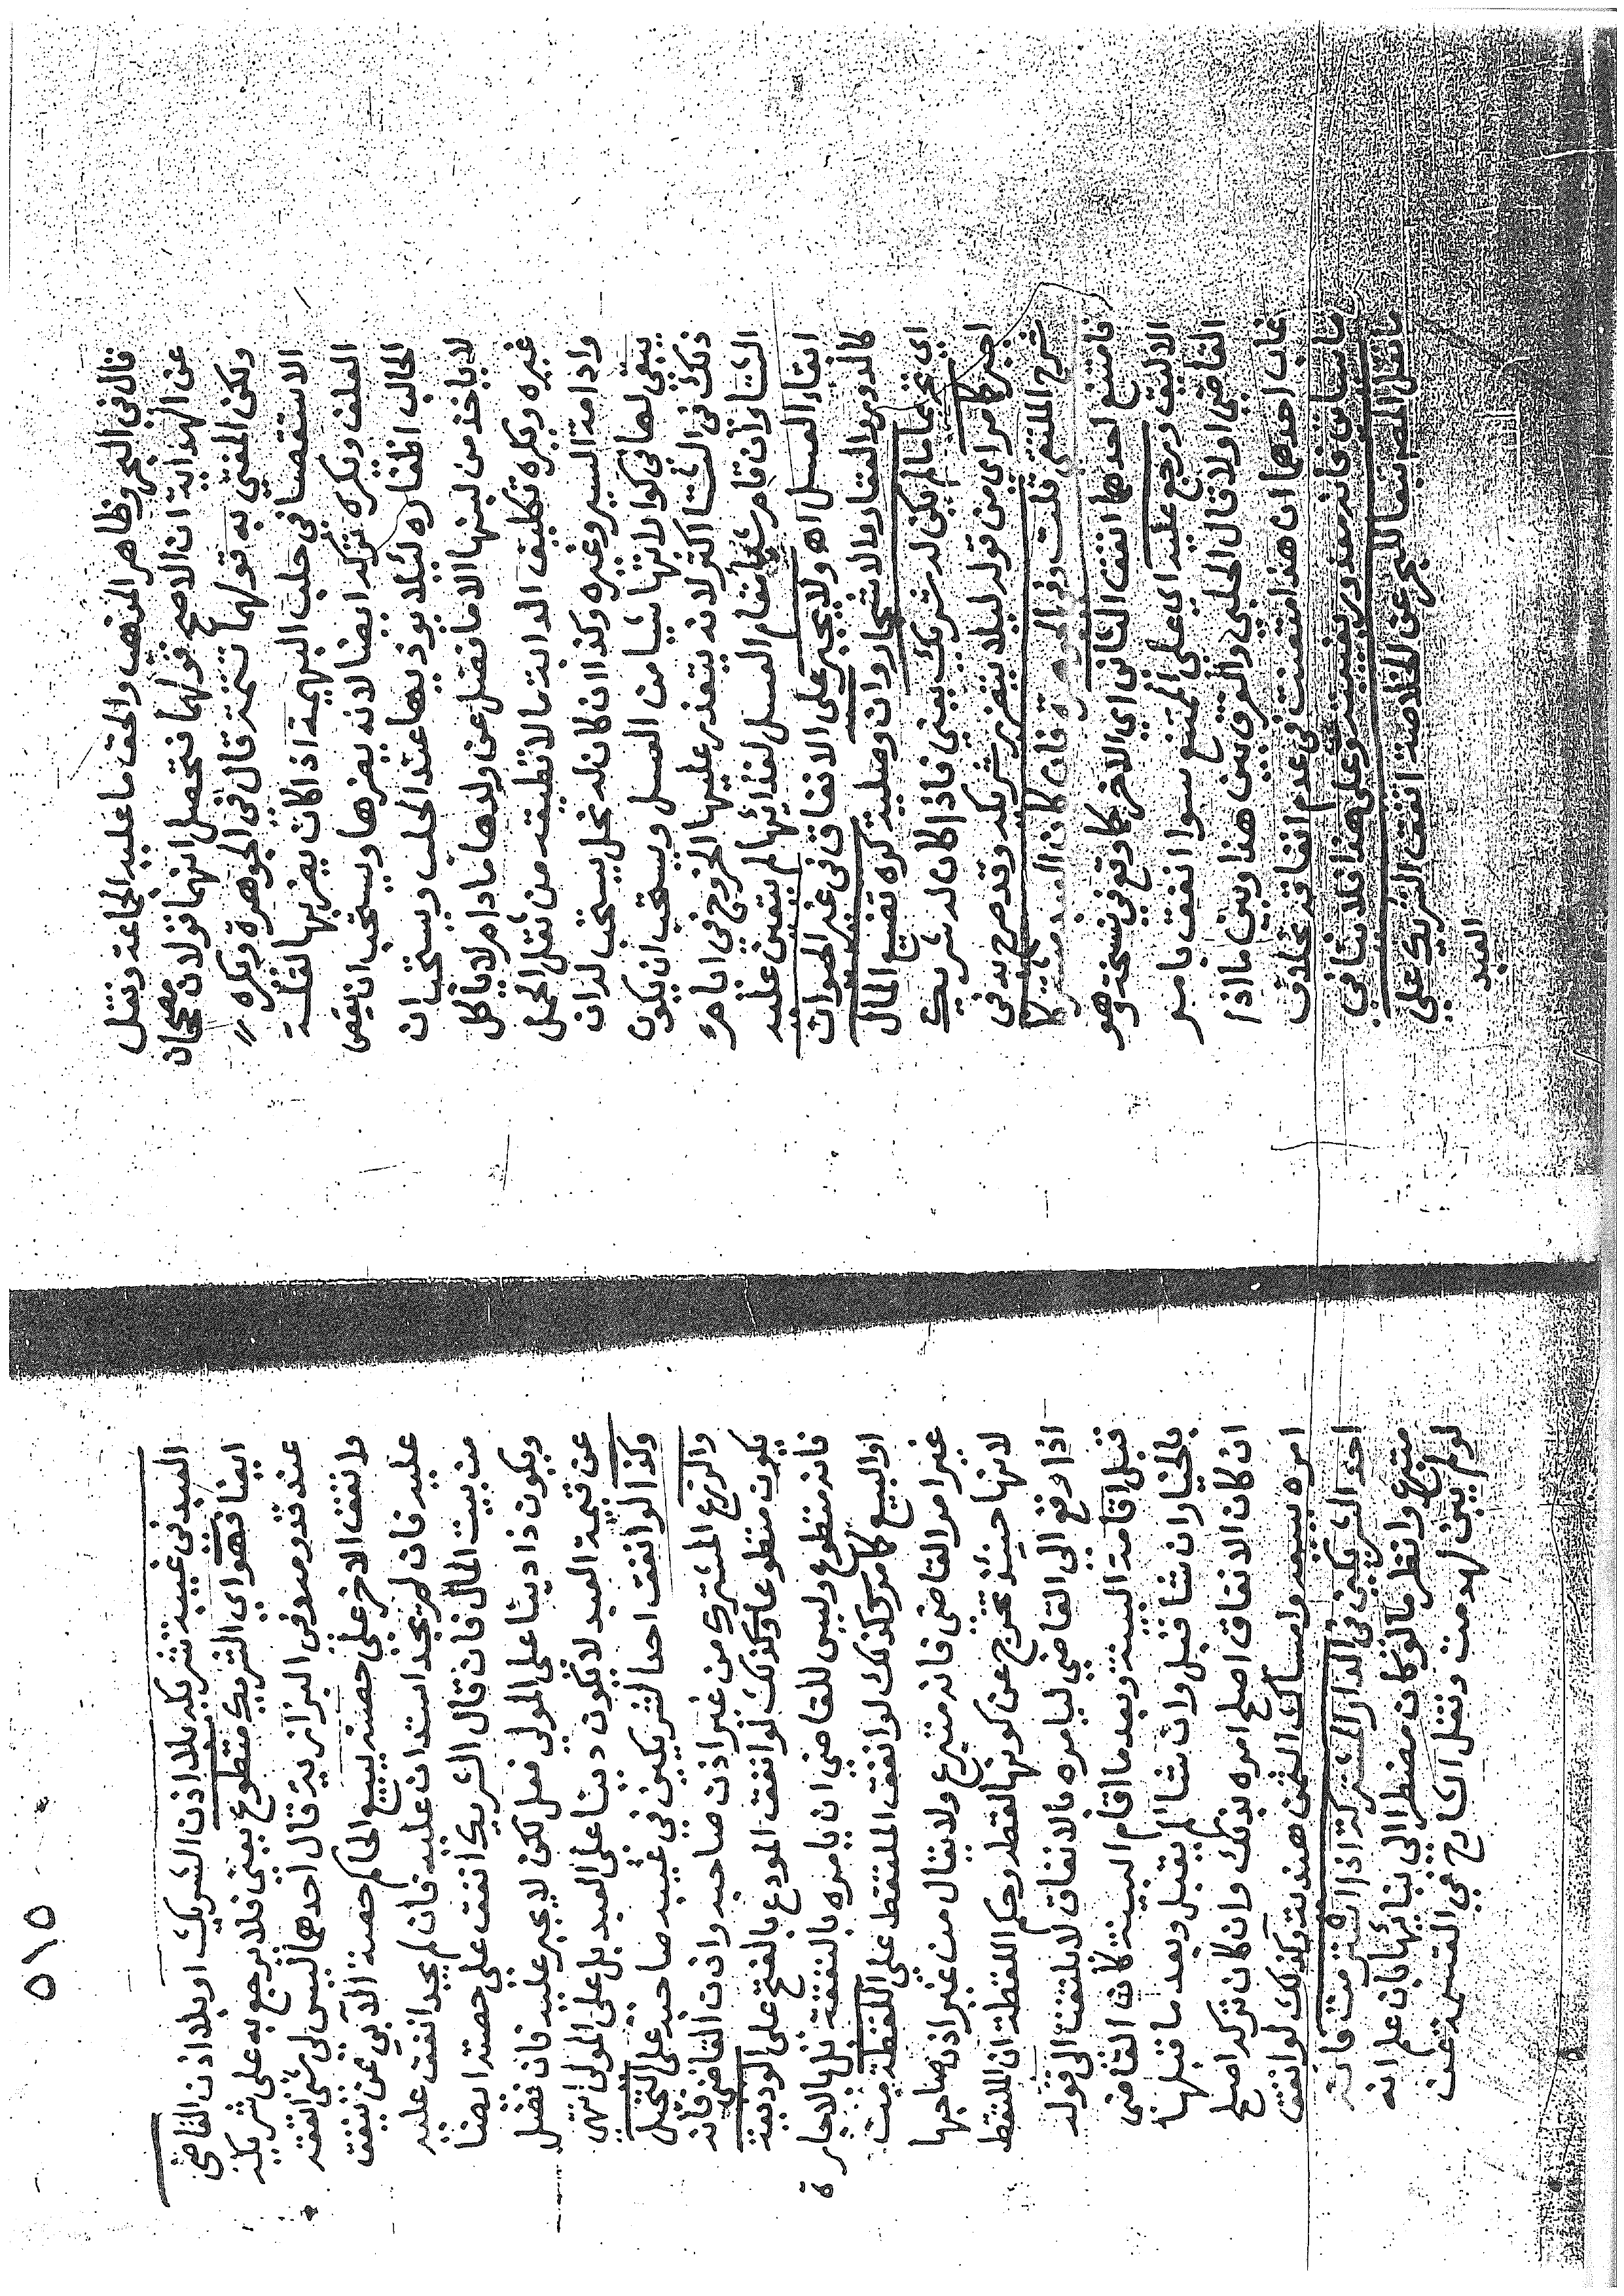 قال في البحر وظاهر المذهب والحق ما عليه الجماعة ونقل
عن الهداية ان الاصح قولهما فتحصل انهما قولان مصححان
ولكن المفتي به قولهما تتمة قال في الجوهرة ويكره
الاستقصا في حلب البهيمة اذا كان يضر بها لقلة
العلف ويكره تركه ايضا لانه يضرها ويستحب ان يقص
الحالب اظفاره لئلا يوذيها عند الحلب ويستحب ان
لا ياخذ من لبنها الا ما فضل عن ولدها ما دام لا ياكل
غيره ويكره تكليف الدابة ما لا تطيقه من ثقل الحمل
وادامة السير وغيره وكذا ان كان له نحل يستحب له ان
يبقي لها في كواراتها شيا من العسل ويستحب ان يكون
ذلك في الشتا اكثر لانه يتعذر عليها الخروج في ايام
الشتا وان قام شي مقام العسل لغذائها لم يتعين عليه
ابقاء العسل اه ولا يجبر على الانفاق في غير الحيوان
كالدور والعقار والاشجار وان وصلية كره تضييع المال
اي تحريما ما لم يكن له شريك يعني فاذا كان له شريك
اجبر كما مر اي من قوله ليلا يتضرر شريكه وقد صرح به في
شرح الملتقى قلت وفي الجوهرة فان كان العبد مشتركا
فامتنع احدهما انفق الثاني اي الاخر كما وقع في نسخة وهو
الاليق ورجع عليه اي على الممتنع سوا انفق بامر
القاضي اولا قال الحلبي والفرق بين هذا وبين ما اذا
غاب احدهما ان هذا متعنت في عدم انفاقه بخلاف
ما سياتي فانه معذور بغيبته وعلى هذا فلا ينافي
ما نقل المصـ تبعا للبحر عن الخلاصة انفق الشريك على
العبد
٥١٥
العبد في غيبة شريكه بلا اذن الشريك او بلا اذن القاضي
ايضا فهو اي الشريك متطوع يعني فلا يرجع به على شريكه
عند قدومه وفي البزازية قال احدهما ليس لي شي انفقه
وانفق الاخر على حصته يبيع الحاكم حصة الآبي عن ينفق
عليه فان لم يجد استدان عليه فان لم يجد انفق عليه
من بيت المال فان قال الشريك انفق على حصته ايضا
ويكون ذا دينا على المولى فعل لكن لا يجبر عليه فان فضل
عن قيمة العبد لا يكون دينا على العبد بل على المولى انتهى
وكذا لو انفق احد الشريكين في غيبة صاحبه على النخيل
والزرع المشترك من غير اذن صاحبه واذن القاضي فانه
يكون متطوعا وكذلك لو انفق المودع بالفتح على الوديعة
فانه متطوع وليس للقاضي ان يامره بالنفقة بل بالاجارة
او البيع كما مر وكذلك لو انفق الملتقط على اللقطة من
غير امر القاضي فانه متبرع ولا يقال من غير اذن صاحبها
لانها حينئذ تخرج عن كونها لقطة وحكم اللقطة ان الملتقط
اذا رفع الى القاضي ليامره بالانفاق لا يلتفت الى قوله
قبل اقامة البينة وبعد ما اقام البينة كان القاضي
بالخيار ان شا قبل وان شا لم يقبل وبعد ما قبلها
ان كان الانفاق اصلح امره بذلك وان كان تركه اصلح
امره ببيعه وامساك الثمن هندية وكذلك لو انفق
احد الشريكين في الدار المشتركة اذا استرمت فانه
متبرع وانظر ما لو كان مضطرا الى بنائها بان علم انه
لو لم يبن لهدمت ونقل الشارح في القسمة عن